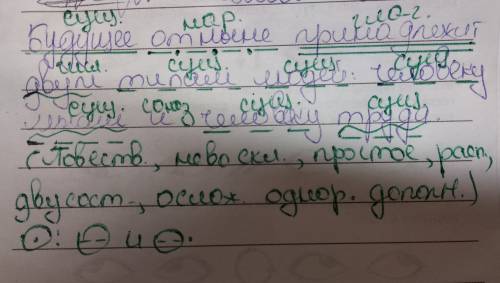 сущ. нар. гла-г.
Будущее отныне принадлежит
чил. сущ. сущ. сущ
двум типам людей: человеку
сущ. союз сущ. сущ.
мысли и человеку труда.
(Повеств., невоскл., простое, расп,
двусост., ослож. однор. дополн.)
⊙: ⊖ и ⊖.